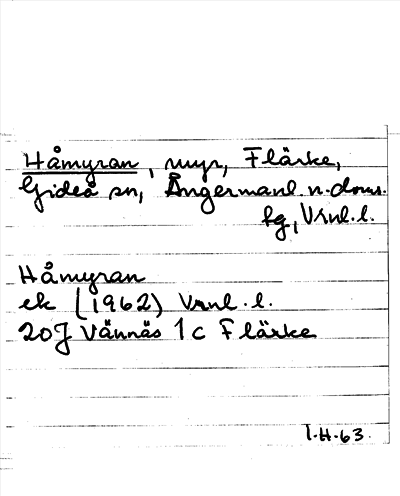 Håmyran, myr, Flärke,
Gideå sn, Ångermanl. n. doms.
fg, Vrnl. l.
Håmyran
ek (1962) Vrnl. l.
20J Vännäs 1c Flärke
I.H.63.